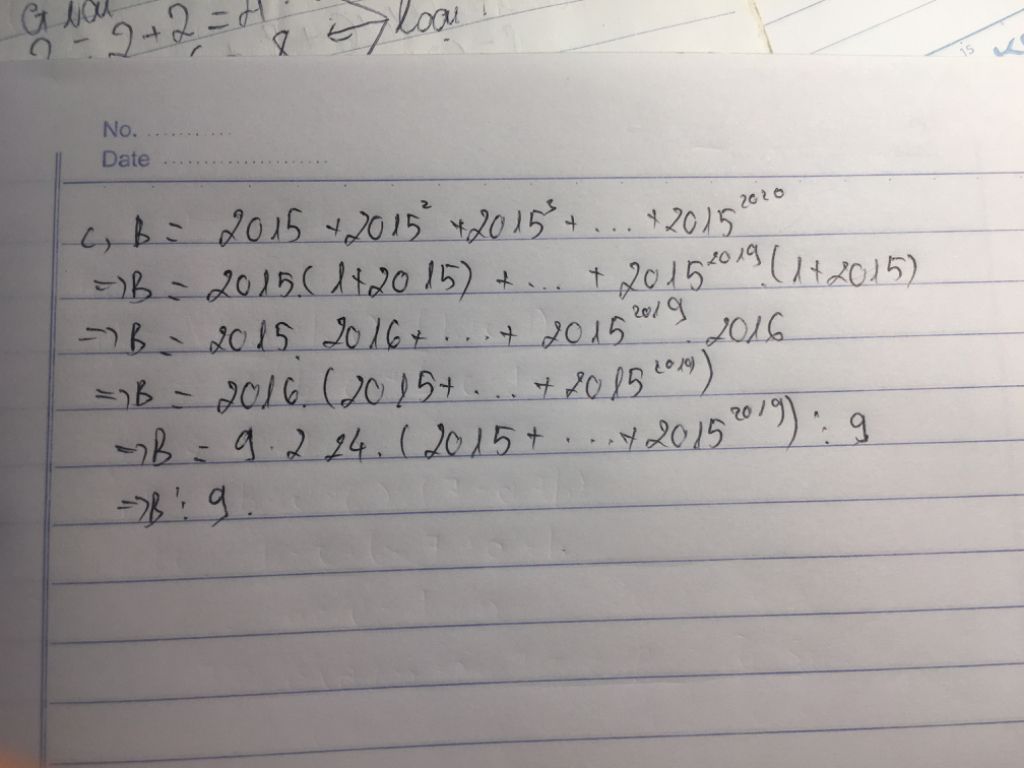 = 2 + 2 =
<=> loại
No. ............
Date ........................
c, B = 2015 + 2015² + 2015³ + ... + 2015²⁰²⁰
=> B = 2015.(1+2015) + ... + 2015²⁰¹⁹.(1+2015)
=> B = 2015. 2016 + ... + 2015²⁰¹⁹. 2016
=> B = 2016.(2015 + ... + 2015²⁰¹⁹)
=> B = 9.224.(2015 + ... + 2015²⁰¹⁹) ⋮ 9
=> B ⋮ 9.